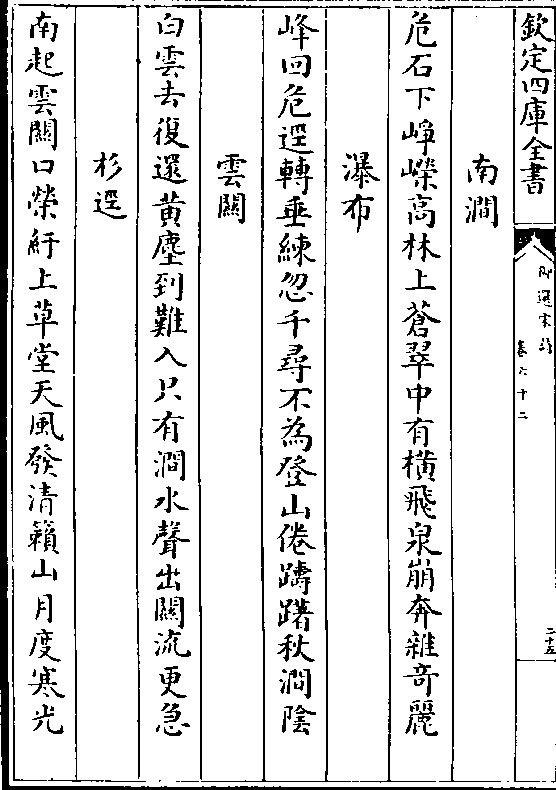 欽定四庫全書
御選宋詩
卷六十二
二十五
南澗
危石下崢嶸高林上蒼翠中有橫飛泉崩奔雜奇麗
瀑布
峰回危逕轉垂練忽千尋不為登山倦躊躇秋澗陰
雲關
白雲去復還黄塵到難入只有澗水聲出關流更急
杉逕
南起雲關口縈紆上草堂天風發清籟山月度寒光